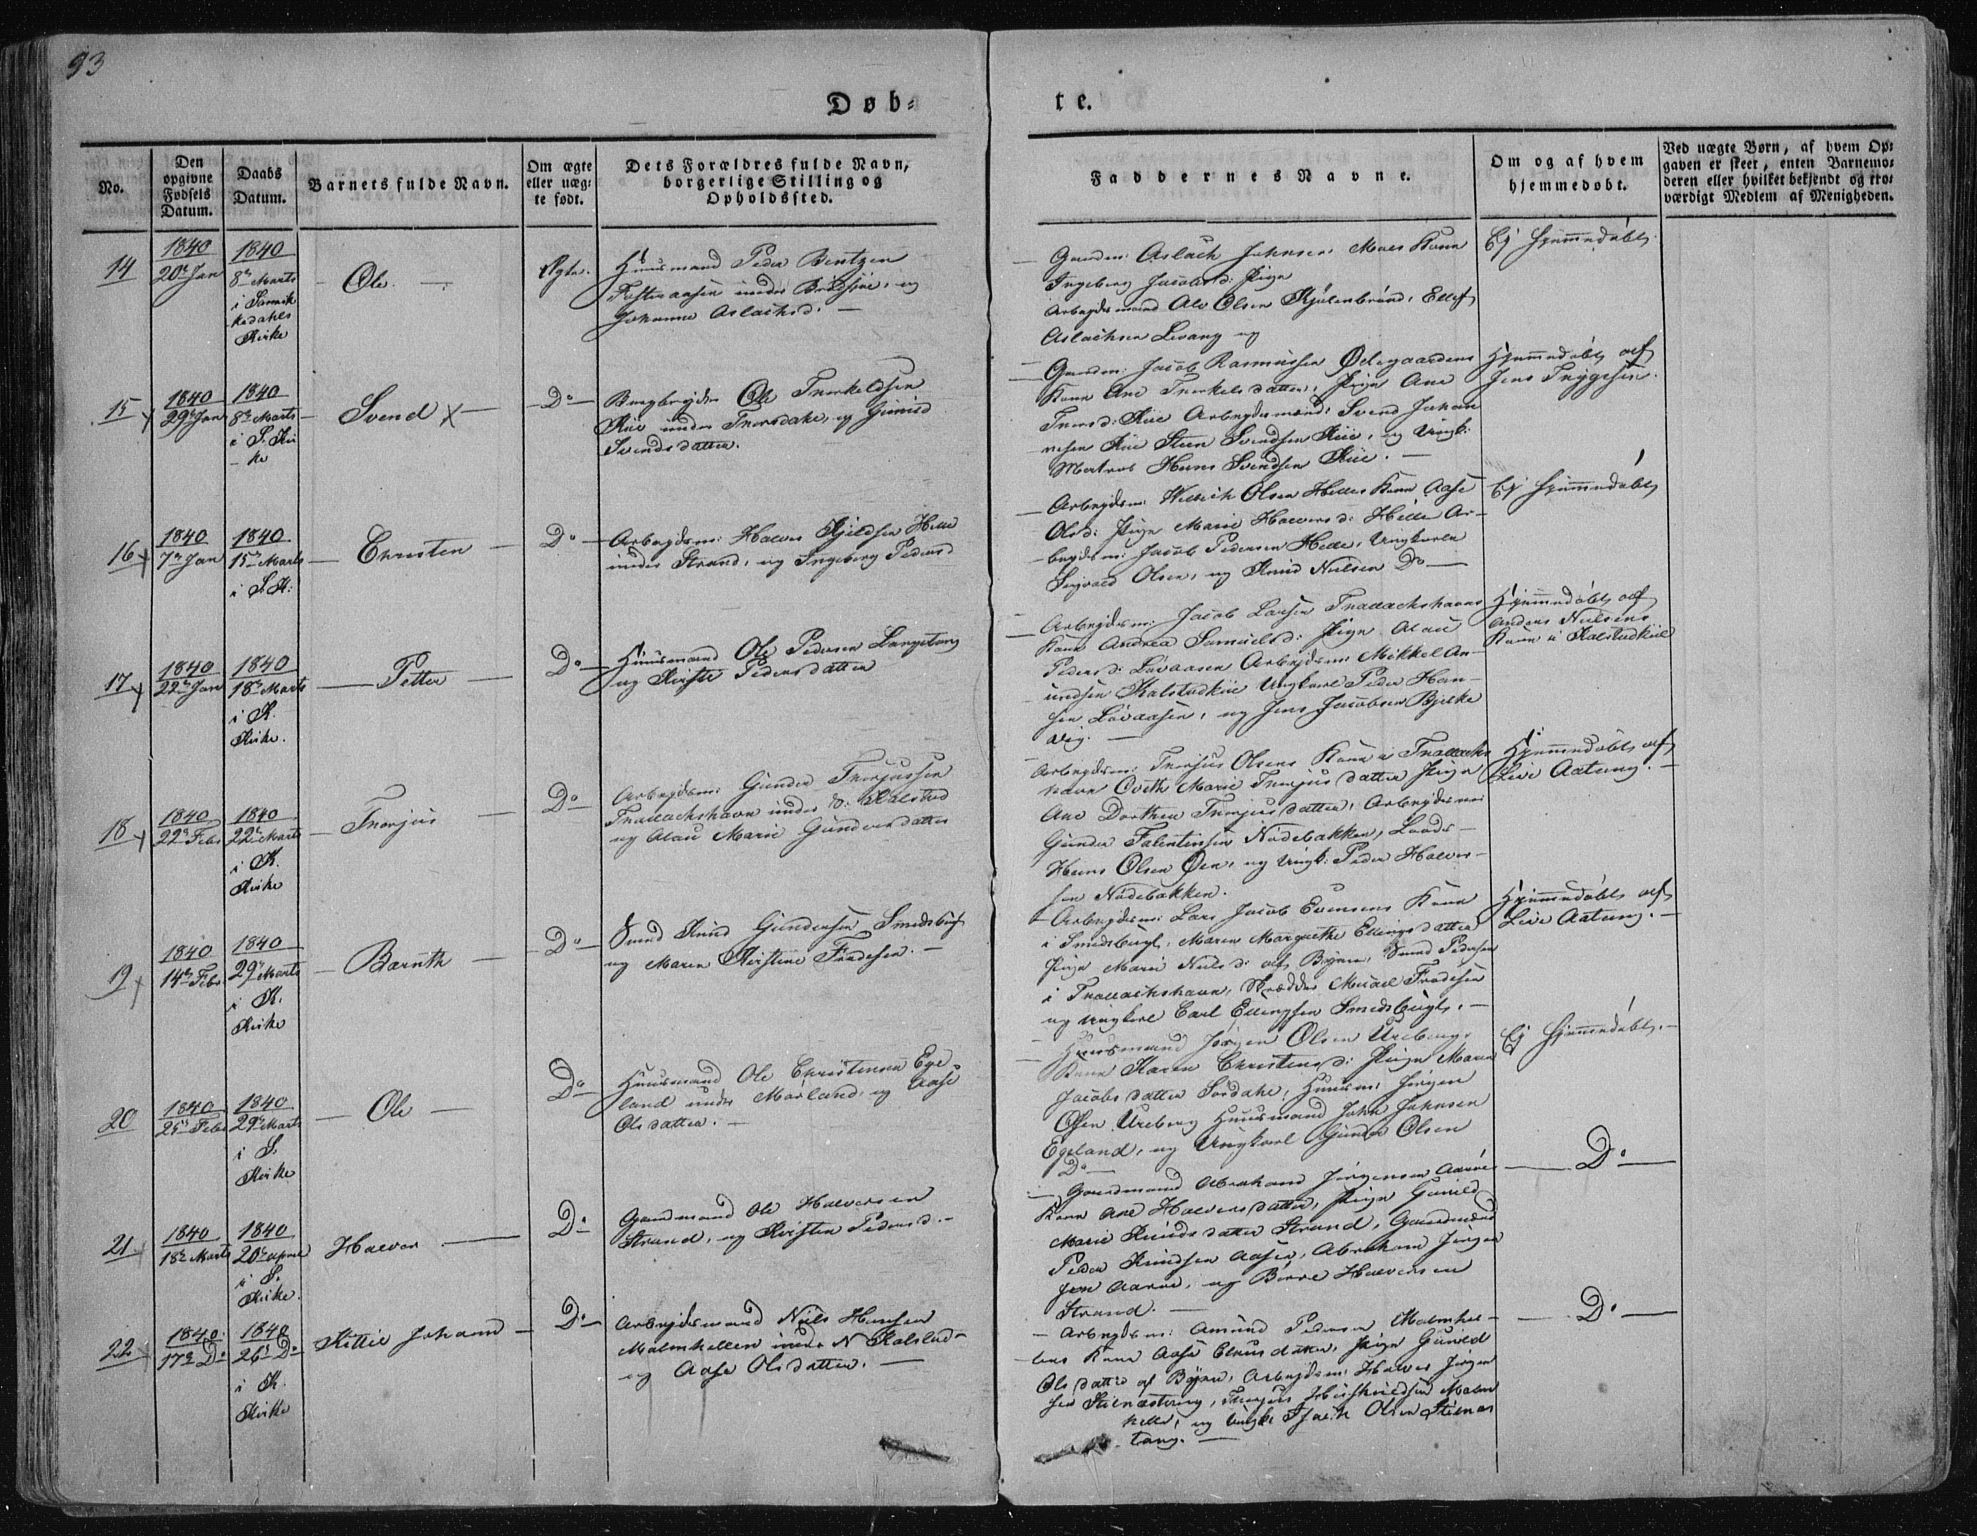 93
Døb-
te.
No.
Den opgivne Fødsels Datum.
Daabs Datum.
Barnets fulde Navn.
Om ægte eller uæg- te født.
Dets Forældres fulde Navn, borgerlige Stilling og Opholdssted.
Faddernes Navne.
Om og af hvem hjemmedøbt.
Ved uægte Børn, af hvem Op-
gaven er skeet, enten Barnemo-
deren eller hvilket bekjendt og tro-
værdigt Medlem af Menigheden.
14
1840
20de Jan
1840
8de Marts
i Sannik
kedahls
Kirke
Ole
Ægte.
Huusmand Peder Bentzen
under og
Johanne Aslachsd.
Gaardm: Aslach Johnsen Kone
Ingeborg Jacobsd: Pige
Arbeydsmand Ole Olsen Ellef
Aslachsen Levang og
Ej hjemmedøbt
15
1840
29de Jan
1840
8de Marts
i S. Kir
ke
Svend
Do
Ole Terkeldsen
Kiie under og Gunild
Svendsdatter.
Gaardm: Jacob Rasmussen Ødegaardens
Kone Ane Terkelsdatter, Pige Ane
Kiie Arbeydsmænd: Svend Johan
nesen Kiie Steen Svendsen Kiie, og Ungk:
Matros Hans Svendsen Kiie.
Hjemmedøbt af
Jens Tryggesen.
16
1840
7de Jan
1840
15de Marts
i S. K:
Christen
Do
Arbeydsm: Halvor Kjeldsen Helle
under Strand, og Ingeborg Pedersd
Arbeydsm: Olsen Helles Kone Aase
Olsd: Pige Marie Halvorsd: Helle Ar-
beydsm: Jacob Pedersen Helle, Ungkarle
Olsen, og Knud Nielsen Do
Ej hjemmedøbt
17
1840
22de Jan
1840
18de Marts
i K.
Kirke.
Petter
Do
Huusmand Ole Pedersen Langetang
og Kirsti Pedersdatter
Arbeydsm: Jacob Larsen
Kone Andrea Samuelsd: Pige
Pedersd: Løvaasen Arbeydsm: Mikkel An-
undsen Kalstadkiil Ungkarl Peder Han-
sen Løvaasen, og Jens Jacobsen Bjelke
vig.
Hjemmedøbt af
Anders Nielsens
Kone i Kalstadkiil
18
1840
22de Febr
1840
22de Marts
i K.
Kirke
Thorjus
Do
Arbeydsm: Gunder Thorjussen
under Kalstad
og Marie Gundersdatter
Arbeydsm: Thorjus Olsens Kone i
Marie Thorjusdatter Pige,
Ane Dorthea Thorjusdatter, Arbeydsm:
Gunder Falentinsen Nødebakken, Loods
Hans Olsen Øen, og Ungk: Peder Halvor-
sen Nødebakken.
Hjemmedøbt af
Live Aatang.
19
1840
14de Febr
1840
29de Marts
i K.
Kirke
Barnth
Do
Knud Gundersen Smedsbugt
og Maren Kirstine
Arbeydsm: Lars Jacob Evensens Kone
i Smedsbugt, Maren Margrethe Ellingsdatter
Pige Marie Nielsd: af Byen, Pedersen
i Skrædder
og Ungkarl Carl Ellingsen Smedsbugt.
Hjemmedøbt af
Live Aatang.
20
1840
25de Febr
1840
29de Marts
i S.
Kirke
Ole
Do
Huusmand Ole Christensen Ege
land under Mørland, og Aase
Olsdatter.
Huusmand Jørgen Olsen Ureberg,
Kone Karen Christensd: Pige Maren
Jacobsdatter Huusm: Jørgen
Olsen Ureberg Huusmand John Johnsen
Egeland, og Ungkarl Gunder Olsen
Do
Ej hjemmedøbt.
21
1840
18de Marts
1840
20de April
i S.
Kirke.
Halvor
Do
Gaardmand Ole Halvorsen
Strand, og Kirsten Pedersd.
Gaardmand Abraham Jørgensen Aarøe
Kone Ane Halvorsdatter, Pige Gunild
Marie Knudsdatter Strand, Gaardmænd
Peder Knudsen Aasen, Abraham Jørgen
sen Aarøe, og Børre Halvorsen
Strand.
Do
22
1840
17de Do
1840
26de Do
i K.
Kirke
Kittil Johann
Do
Arbeydsmand Niels Hansen
Malmhellen under N Kalstad
og Aase Olsdatter.
Arbeydsm: Amund Pedersen Malmhel-
lens Kone Aase Clausdatter, Pige Gunild
Olsdatter af Byen, Arbeydsm: Halvor Jørgen
sen Stilnæstang, Thorjus Malm
hellen, og Ungk: Isach Olsen Stilnæs
tang.
Do